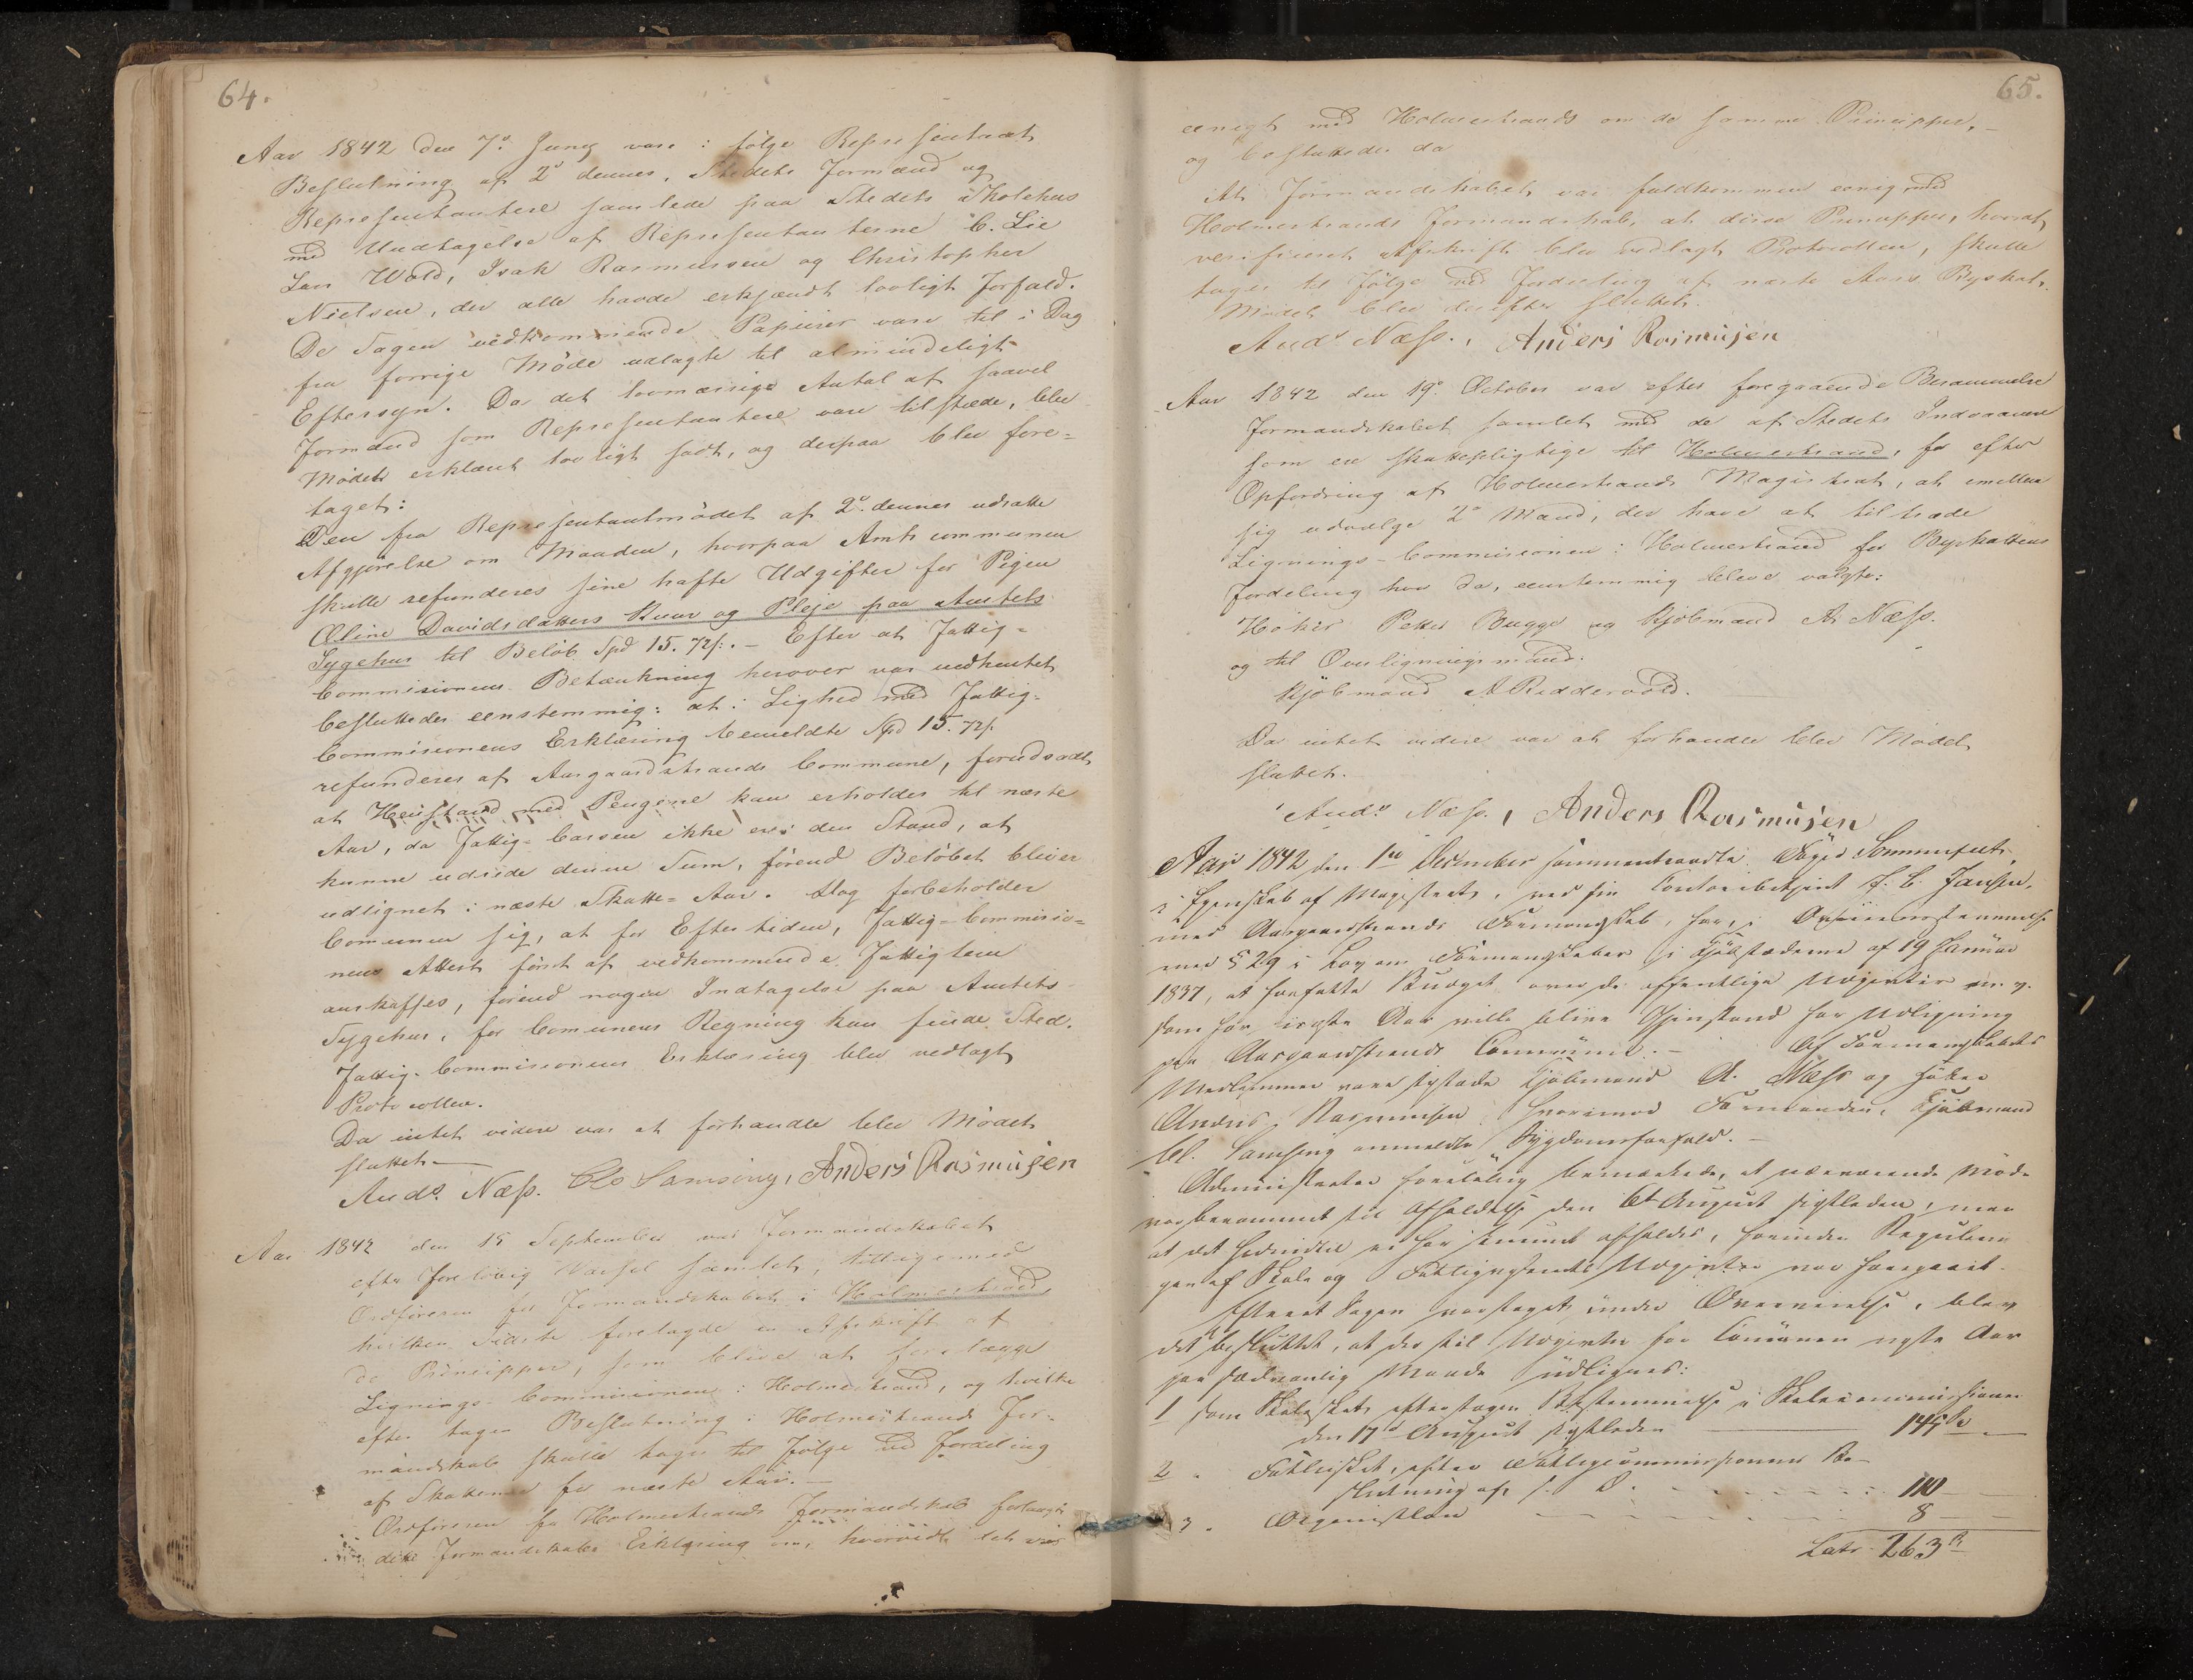 64.
Aar 1842 den 7de Juny vare i følge Representant
Beslutning af 2de dennes, Stedets Formænd og
Representantere samlede paa Stedets Skolehus
med Undtagelse af Representanterne C. Lie
Lars Wold, Isak Rasmussen og Christopher
Nielsen, der alle havde erkjændt lovligt Forfald.
De Sagen vedkommende Papiirer vare til i Dag
fra forrige Møde udlagte til almindeligt
Eftersyn. Da det lovmæssige Antal af saavel
Formænd som Representantere vare tilstæde, blev
Mødet erklæret lovligt sadt, og derpaa blev fore-
taget:
Den fra Representantmødet af 2de dennes udsatte
Afgjørelse om Maaden, hvorpaa Amts communen
skulle refunderes sine hafte Udgifter for Pigen
Oline Davidsdatters Kuur og Pleje paa Amtets
Sygehus til Beløb Spd 15. 72 s. - Efter at Fattig-
Commisionens Betænkning herover var indhentet
besluttedes eenstemmig: at i Lighed med Fattig-
Commisionens Erklæring bemeldte Spd 15. 72 s.
refunderes af Aasgaardstrands Commune, forudsadt
at Henstand med Pengene kan erholdes til næste
Aar, da Fattig-Cassen ikke er i den Stand, at
kunne udrede denne Sum, førend Beløbet bliver
udlignet i næste Skatte-Aar. Dog forbeholder
Comunen sig, at for Eftertiden, Fattig-Commisio-
nens Attest først af vedkommende Fattiglem
anskaffes, førend nogen Indtagelse paa Amtets
Sygehus, for Comunens Regning kan finde Sted.
Fattig-Commisionens Erklæring blev vedlagt
Protocollen.
Da intet videre var at forhandle blev Mødet
sluttet.
Ands. Næss. Cls Samsing, Anders Rasmusen
Aar 1842 den 15 September var Formandskabet
efter foreløbig Varsel samlet, tilligemed
Ordføreren for Formandskabet i Holmestrand,
hvilken Sidste forelagde en Afskrift af
de Principper, som blive at forelægge
Lignings-Commisionen i Holmestrand, og hvilke
efter tagen Beslutning i Holmestrands For-
mandskab skulle tages til Følge ved Fordeling
af Skatterne for næste Aar.
Ordføreren fra Holmestrands Formandskab forlangte
dette Formandskabs Erklæring om, hvorvidt det var
65.
eenigt med Holmestrands om de samme Principper,
og besluttedes da
At Formandskabet var fuldkommen eenig med
Holmestrands Formandskab, at disse Principper, hvoraf
verificeret Afskrift blev vedlagt Protocollen, skulle
tages til Følge ved Fordeling af næste Aars Byskat.
Mødet blev derefter sluttet.
Ands Næss., Anders Rasmusen
Aar 1842 den 19de October var efter foregaaende Berammelse
Formandskabet samlet med de af Stedets Indvaanere
som ere skattepligtige til Holmestrand, for efter
Opfordring af Holmestrands Magistrat, at imellem
sig udvælge 2de Mænd, der have at tiltræde
Lignings-Commisionen i Holmestrand for Byskattens
Fordeling hvor da, eenstemmig bleve valgte:
Høker Petter Bugge og Kjøbmand A. Næss.
og til Overligningsmænd:
Kjøbmand A Riddervold.
Da intet videre var at forhandle blev Mødet
sluttet.
Ands Næss., Anders Rasmusen
Aar 1842 den 1ste December sammentraadte Foged Sommerfelt,
i Egenskab af Magistrat, ved sin Contoirbetjent J. C. Jansen,
med Aasgaardstrands Formandskab, for, i Overeensstemmelse
med § 29 i Lov om Formandskaber i Kjøbstæderne af 19 Januar
1837, at forfatte Budget over de offentlige Udgivter
som for næste Aar ville blive Gjenstand for Udligning
paa Aasgaardstrands Commune. - Af Formandskabets
Medlemmer vare tilstæde Kjøbmand A. Næss og Høker
Anders Rasmussen hvorimod Formanden, Kjøbmand
Cl. Samsing anmeldte Sygdomsforfald. -
Administrator foreløbig bemærkede, at nærværende Møde
var berammet til Afholdelse den 6te August sidstleden, men
at det hidindtil ei har kunnet afholdes, forinden Reguleringen
af Skole og Fattigvæsenets Udgivter var foregaaet.
Efterat Sagen var taget under Overveielse, blev
det besluttet, at der til Udgivter for Comunen næste Aar
paa sædvanlig Maade udlignes:
1 som Skoleskat, efter tagen Bestemmelse i Skolecommissionen
den 17de August sidstleden 145 Sp
2. Fattigskat, efter Fattigcommissionens Be-
slutning af s. D. 110
3. Organistløn 8
Latr 263